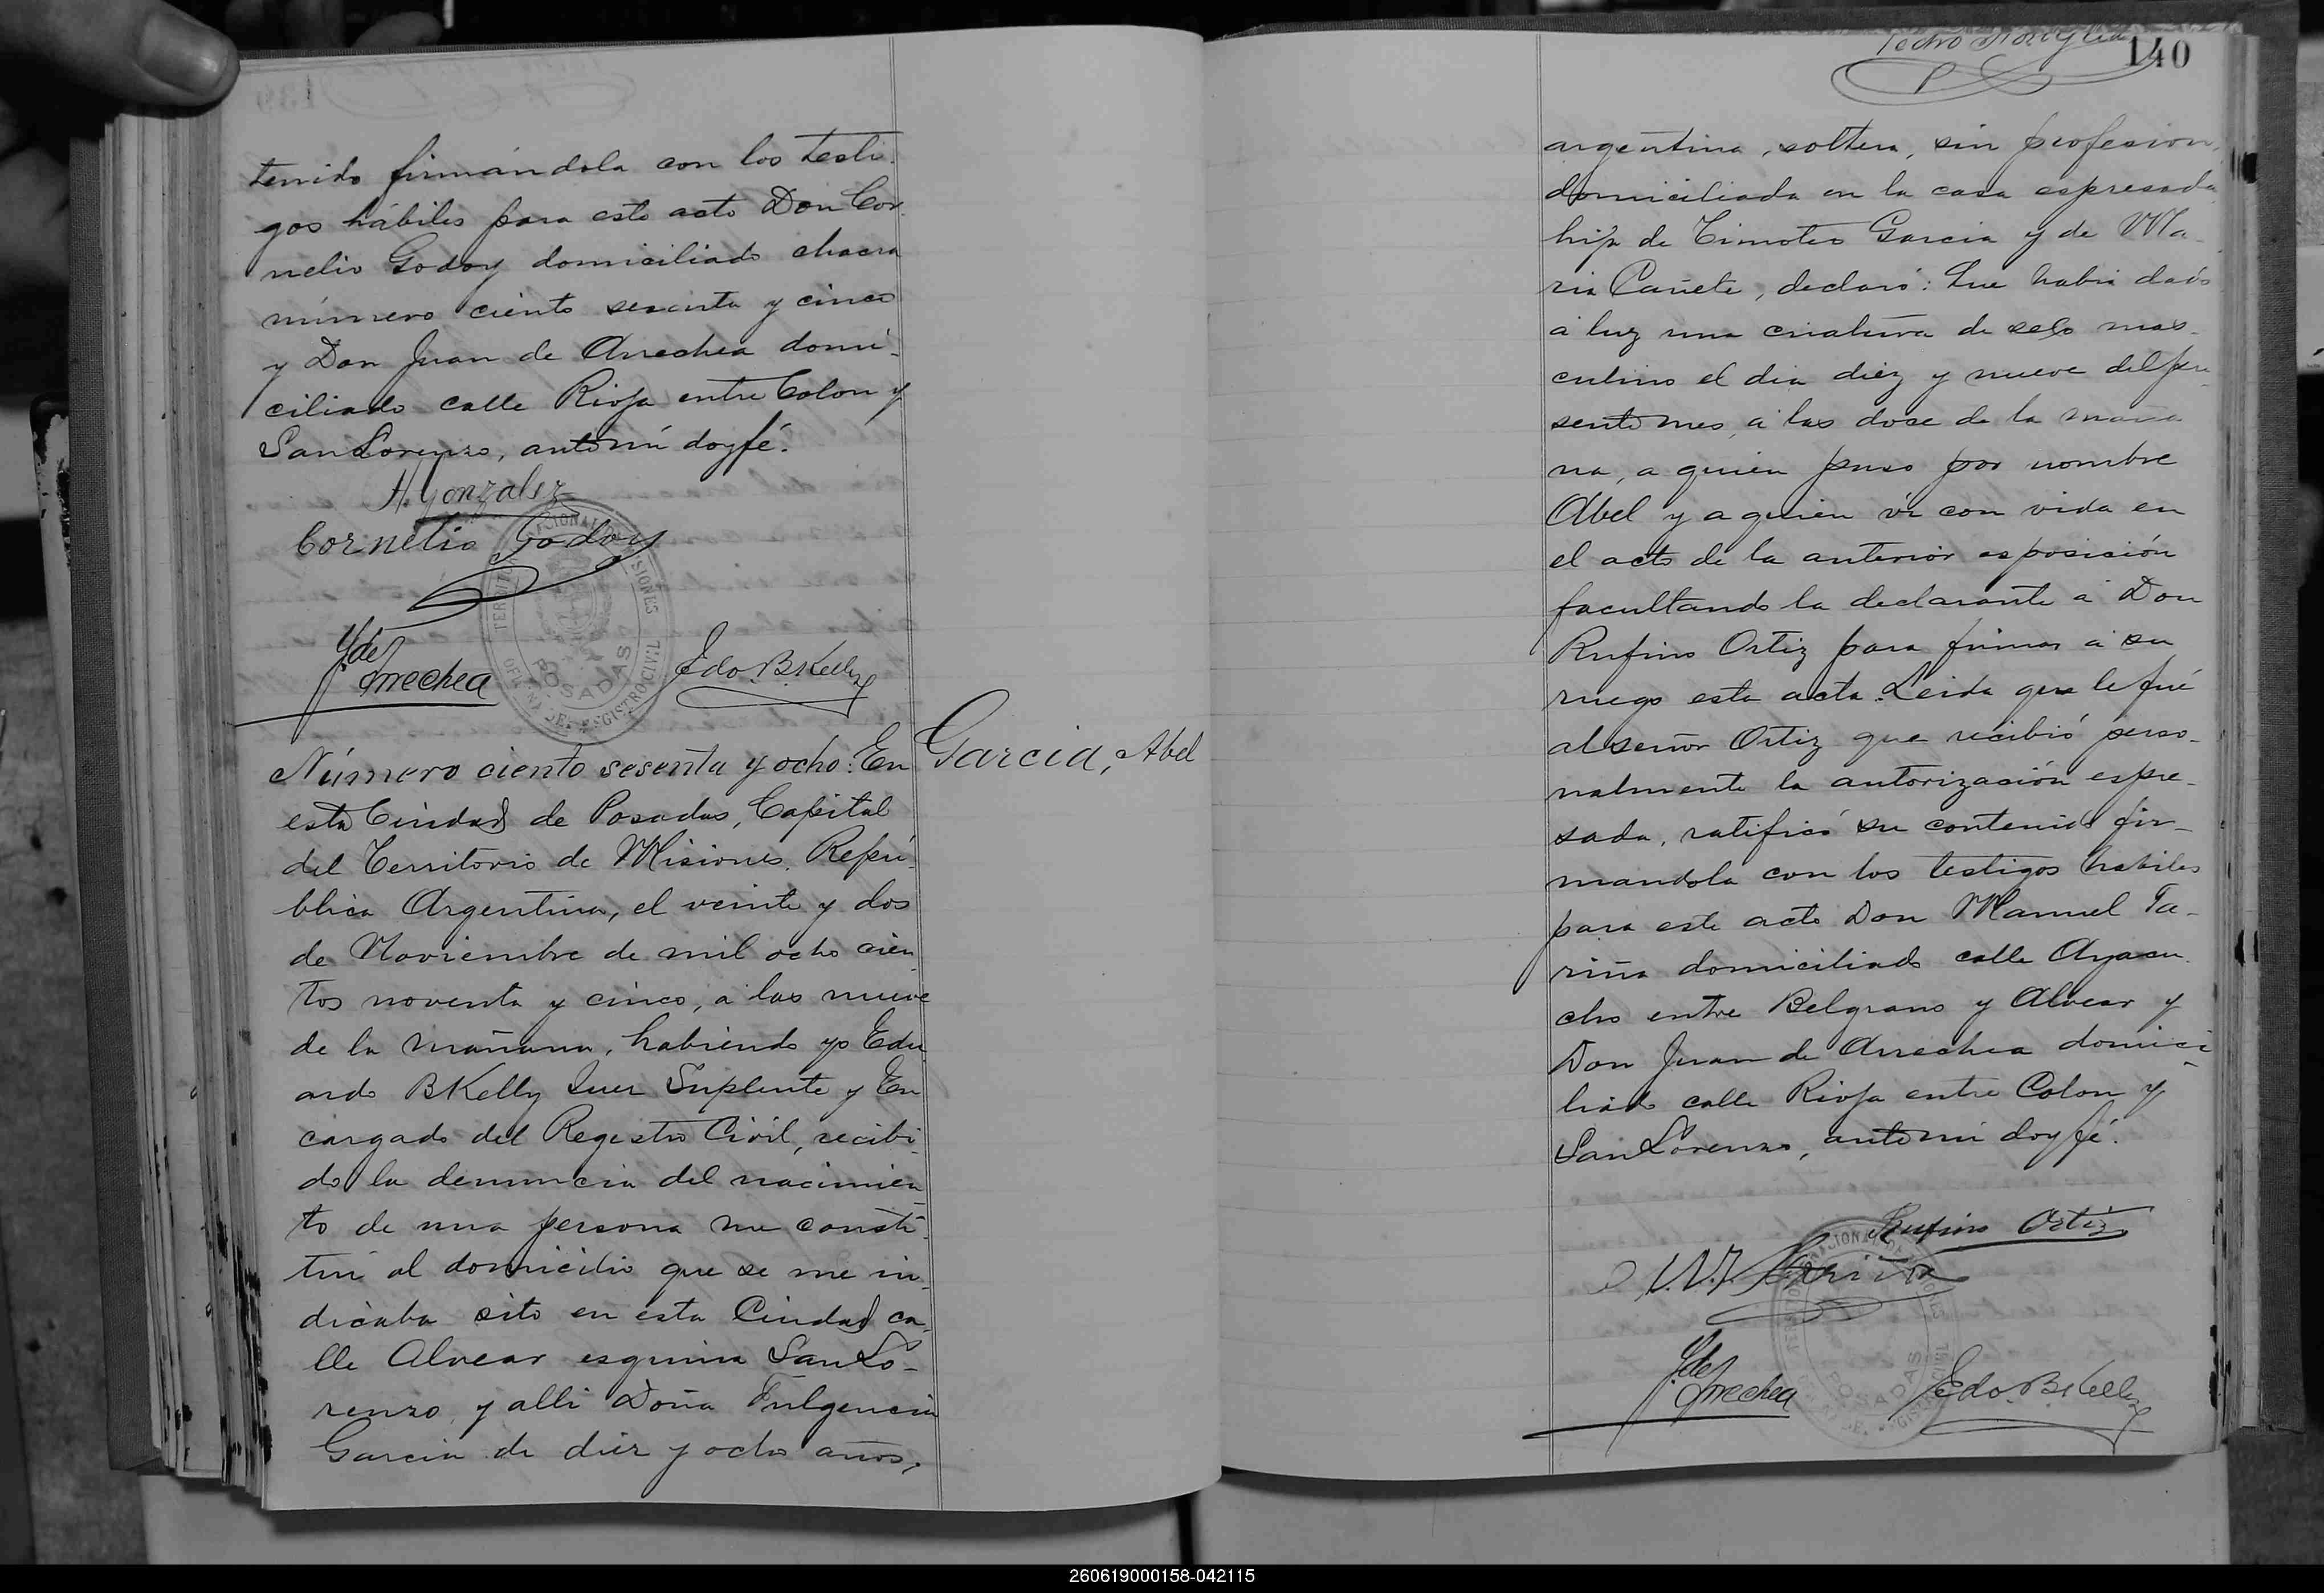 tenido firmándola con los testi-
gos hábiles para este acto Don Cor-
nelio Godoy domiciliado chacra
número ciento sesenta y cinco
y Don Juan de Arrechea domi-
ciliado calle Rioja entre Colon y
San Lorenzo, ante mí doy fé.
H. Gonzalez
Cornelio Godoy
J. de Arrechea
Edo. B Kelly
TERRITORIO NACIONAL DE MISIONES
POSADAS
OFICINA DEL REGISTRO CIVIL
Número ciento sesenta y ocho: En
Garcia, Abel
esta Ciudad de Posadas, Capital
del Territorio de Misiones, Repú-
blica Argentina, el veinte y dos
de Noviembre de mil ocho cien-
tos noventa y cinco, a las nueve
de la mañana, habiendo yo Edu
ardo B Kelly Juez Suplente y En
cargado del Registro Civil, recibi-
do la denuncia del nacimien-
to de una persona me consti-
tuí al domicilio que se me in-
dicaba sito en esta Ciudad ca-
lle Alvear esquina San Lo-
renzo, y alli Doña Fulgencia
Garcia de diez y ocho años,
140
argentina, soltera, sin profesion,
domiciliada en la casa espresada
hija de Timoteo Garcia y de Ma-
ria Cañete, declaró: Que habia dado
á luz una criatura de seso mas-
culino el dia diez y nueve del pre-
sente mes, á las doce de la maña
na, a quien puso por nombre
Abel y a quien ví con vida en
el acto de la anterior esposición
facultando la declarante á Don
Rufino Ortiz para firmar á su
ruego esta acta. Leida que le fué
al señor Ortiz que recibió perso-
nalmente la autorización espre-
sada, ratificó su contenido fir-
mandola con los testigos habiles
para este acto Don Manuel Fa-
riña domiciliado calle Ayacu-
cho entre Belgrano y Alvear y
Don Juan de Arrechea domici-
liado calle Rioja entre Colon y
San Lorenzo, ante mí doy fé.
Rufino Ortiz
Fariña
J. de Arrechea
Edo. B Kelly
POSADAS
260619000158-042115